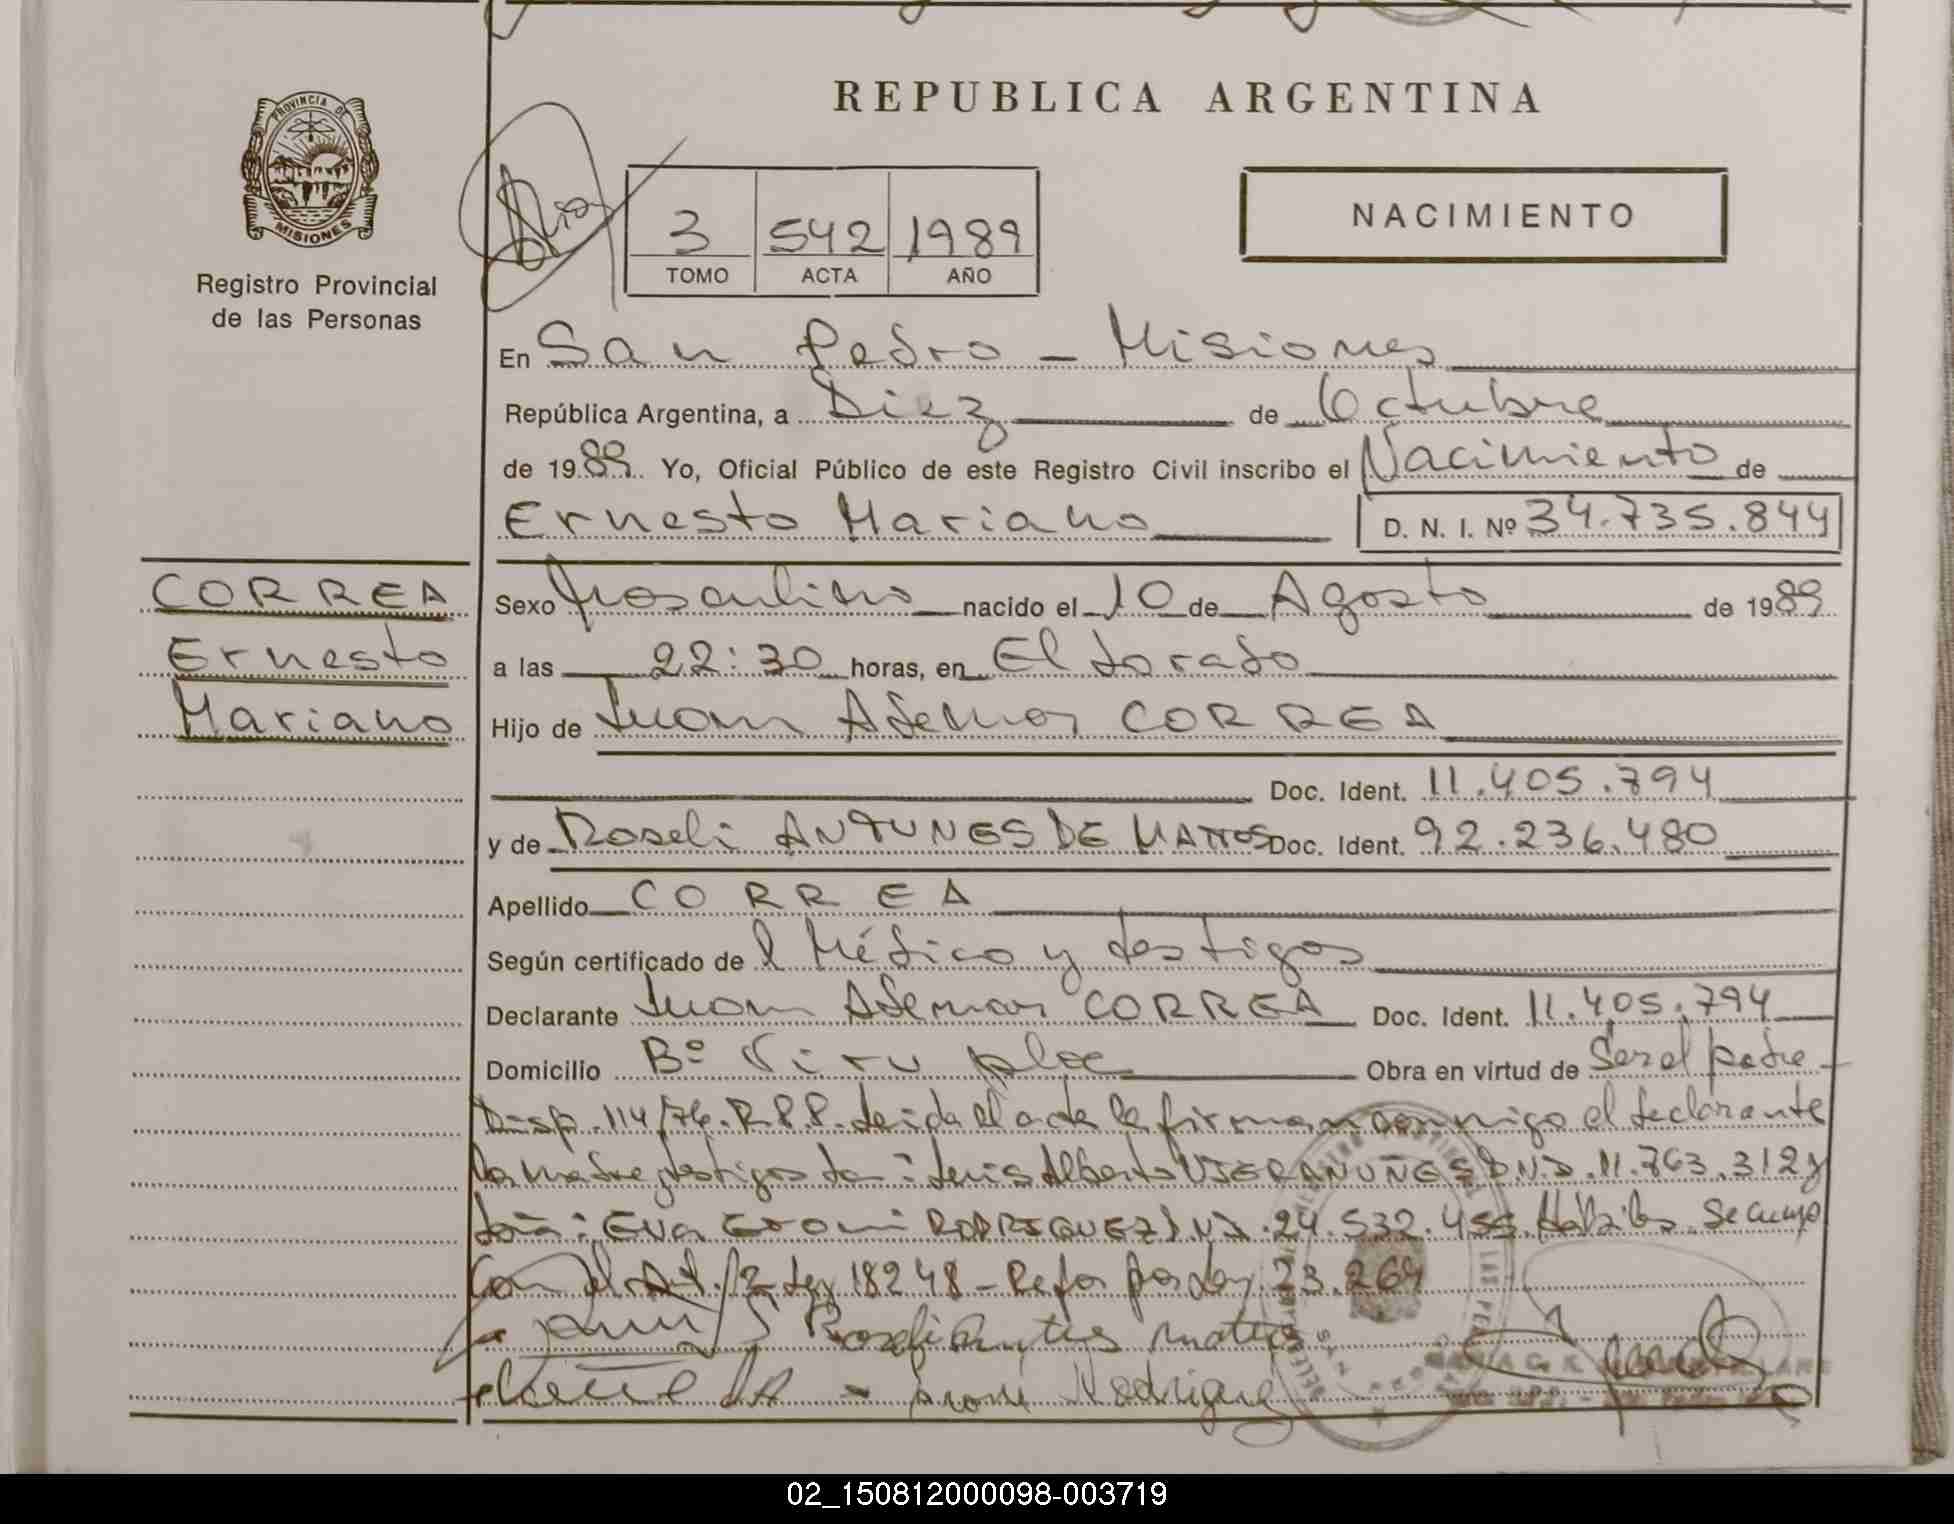 REPUBLICA ARGENTINA
PROVINCIA DE
MISIONES
Registro Provincial
de las Personas
3 542 1989
TOMO ACTA AÑO
NACIMIENTO
En San Pedro - Misiones
República Argentina, a Diez de Octubre
de 1989. Yo, Oficial Público de este Registro Civil inscribo el Nacimiento de
Ernesto Mariano D. N. I. Nº 34.735.844
CORREA
Ernesto
Mariano
Sexo Masculino nacido el 10 de Agosto de 1989
a las 22:30 horas, en Eldorado
Hijo de Juan Ademar CORREA
Doc. Ident. 11.405.794
y de Roseli ANTUNES DE MATTOS Doc. Ident. 92.236.480
Apellido CORREA
Según certificado de l Médico y testigos
Declarante Juan Ademar CORREA Doc. Ident. 11.405.794
Domicilio Bº Obra en virtud de Ser el padre -
Disp. 114/76. R.P.P. Leida el acta la firman conmigo el declarante
la madre y testigos Luis Alberto VIERA NUÑES D.N.I. 11.763.312 y
Eva RODRIGUEZ D.N.I. 24.532.455 Habiles. Se cumpo
Con el Art. 12 Ley 18248 - Refor por Ley 23.264
Roseli Antunes matos
Rodriguez
02_150812000098-003719